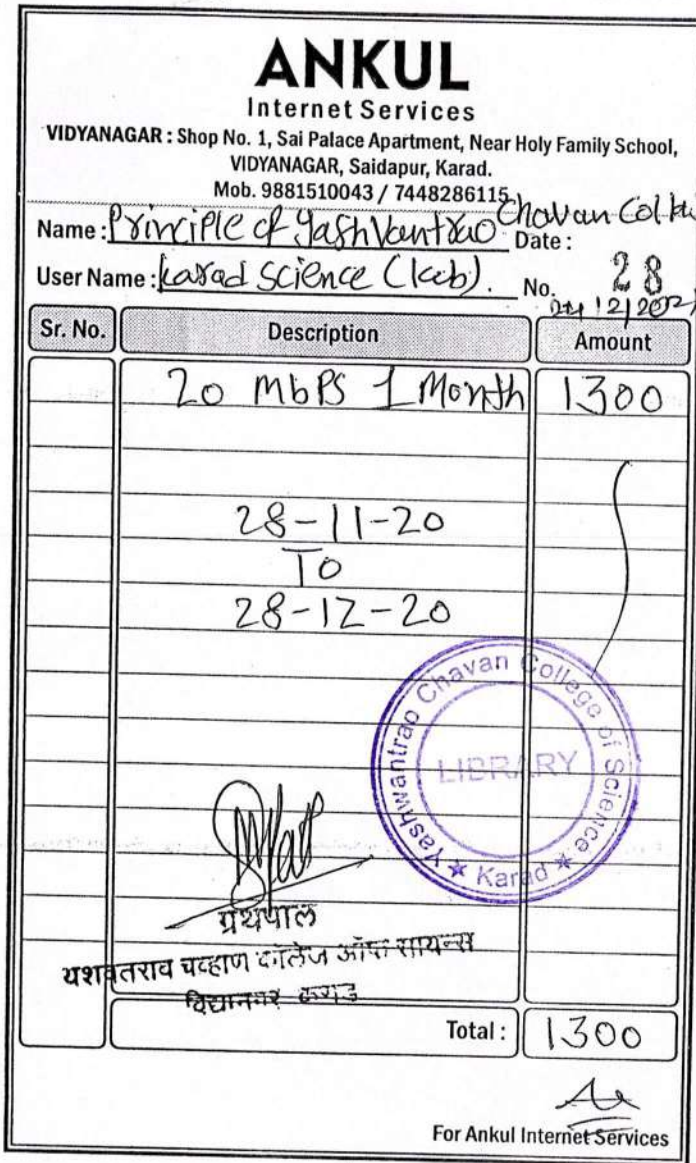 ANKUL
Internet Services
VIDYANAGAR : Shop No. 1, Sai Palace Apartment, Near Holy Family School,
VIDYANAGAR, Saidapur, Karad.
Mob. 9881510043 / 7448286115
Name : Principle of Yashvantrao Chavan
Date :
User Name : karad science
No. 28
Sr. No. Description Amount
20 MbPS 1 Month 1300
28-11-20
To
28-12-20
Yashwantrao Chavan College of Science
LIBRARY
★ Karad ★
ग्रंथपाल
यशवंतराव चव्हाण कॉलेज ऑफ सायन्स
विद्यानगर कराड
Total : 1300
For Ankul Internet Services